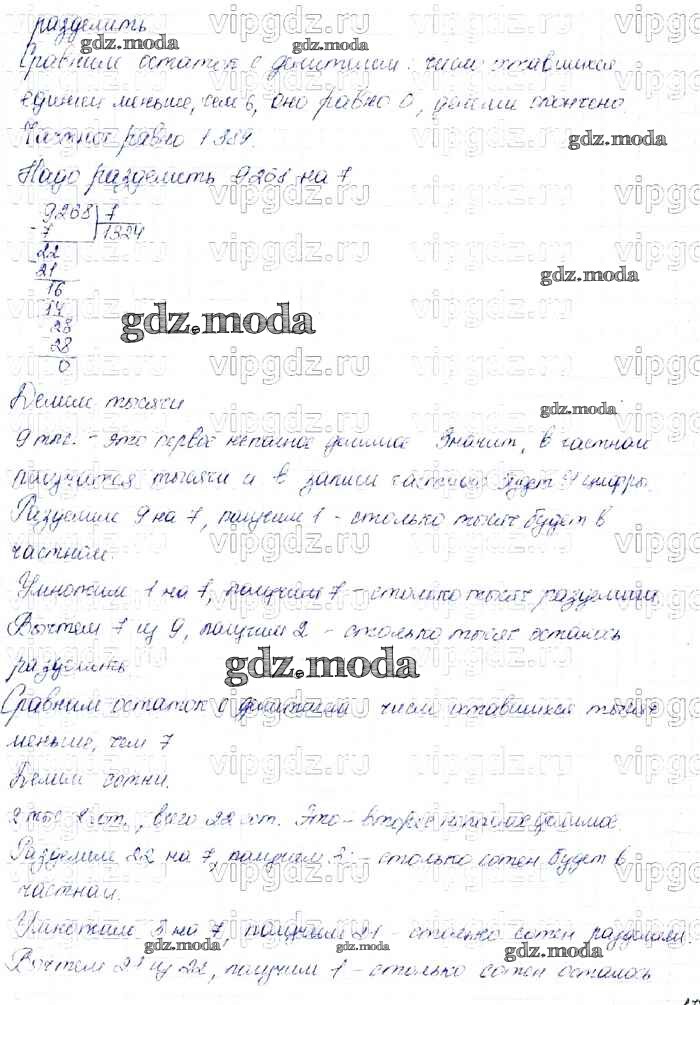 разделить
Сравним остаток с делителем: число оставшихся
единиц меньше, чем 6, оно равно 0, деление окончено
Частное равно 1389.
Надо разделить 9268 на 7
9268 7
- 7 1324
22
21
16
14
28
28
0
Делим тысячи
9 тыс. - это первое неполное делимое Значит, в частном
получатся тысячи и в записи частного будет 4 цифры.
Разделим 9 на 7, получим 1 - столько тысяч будет в
частном.
Умножим 1 на 7, получим 7 - столько тысяч разделили
Вычтем 7 из 9, получим 2 - столько тысяч осталось
разделить
Сравним остаток с делителем число оставшихся тысяч
меньше, чем 7
Делим сотни.
2 тыс 2 сот., всего 22 сот. Это - второе неполное делимое.
Разделим 22 на 7, получим 3 - столько сотен будет в
частном.
Умножим 3 на 7, получим 21 - столько сотен разделили.
Вычтем 21 из 22, получим 1 - столько сотен осталось
gdz.moda
vipgdz.ru